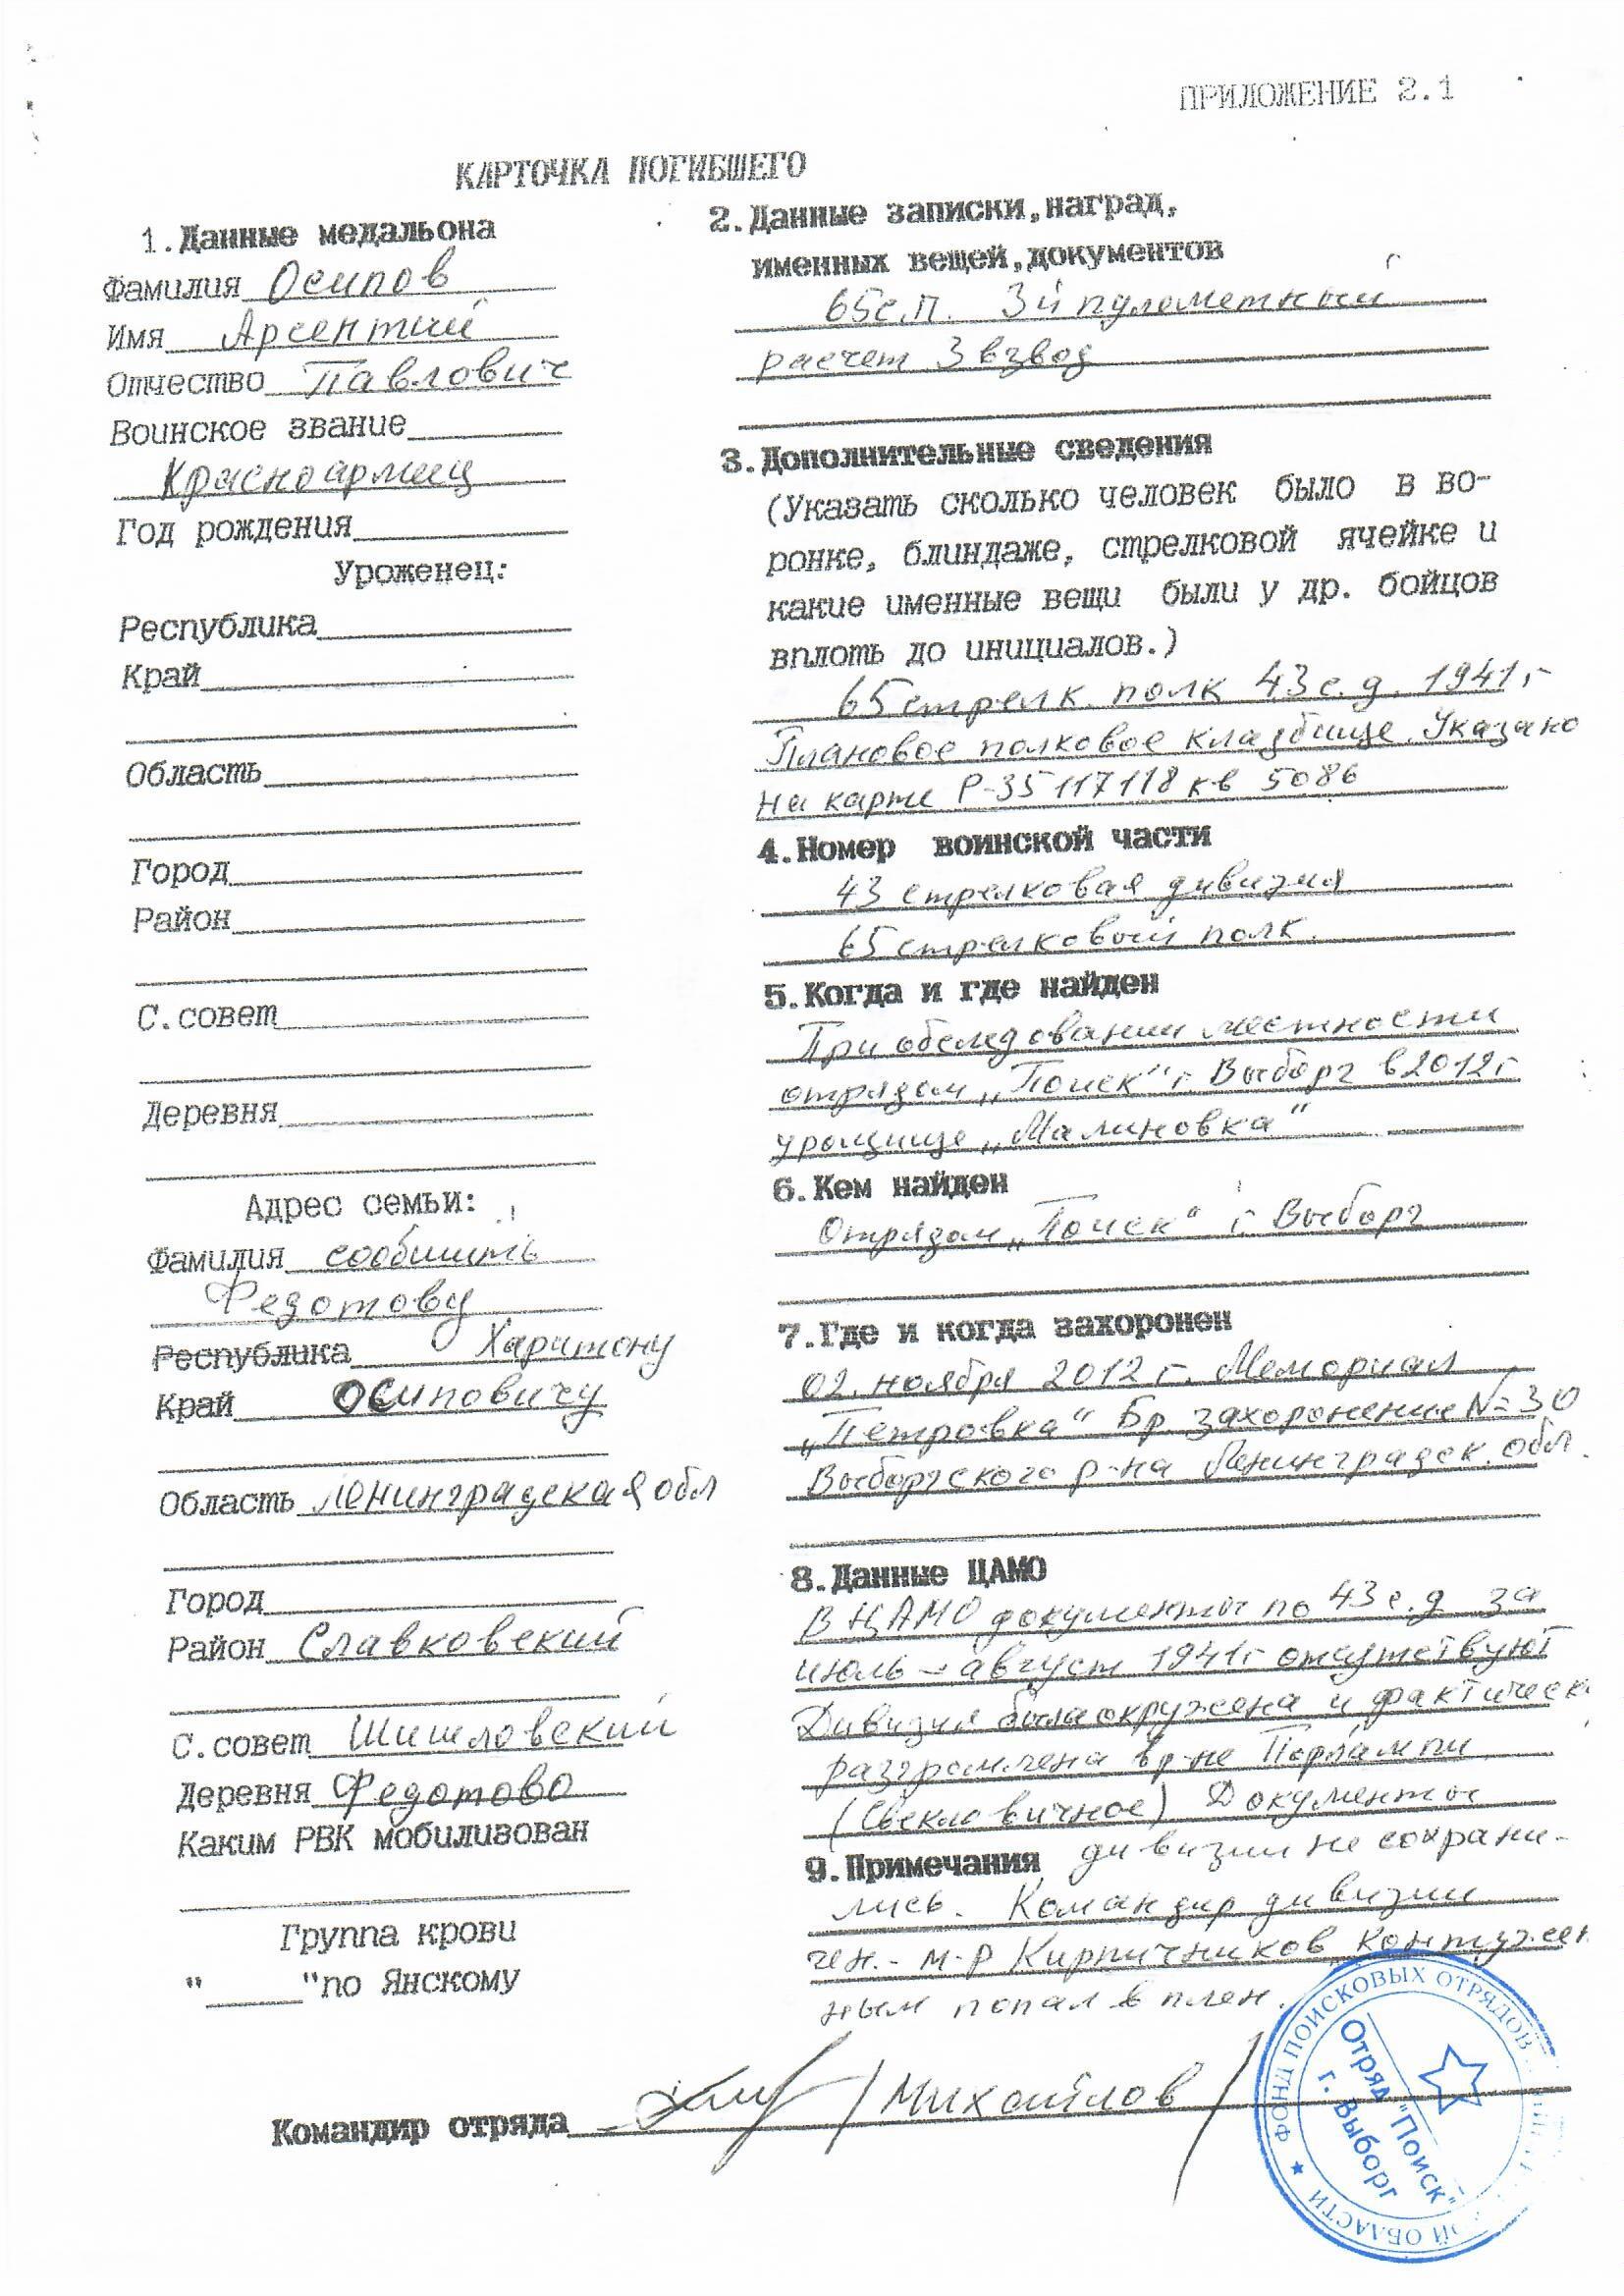 ПРИЛОЖЕНИЕ 2.1
КАРТОЧКА ПОГИБШЕГО
1.Данные медальона
Фамилия Осипов
Имя Арсентий
Отчество Павлович
Воинское звание
Красноармеец
Год рождения
Уроженец:
Республика
Край
Область
Город
Район
С.совет
Деревня
Адрес семьи:
Фамилия сообщить
Федотову
Республика Харитону
Край Осиповичу
Область Ленинградская обл
Город
Район Славковский
С.совет Шишловский
Деревня Федотово
Каким РВК мобилизован
Группа крови
"_____"по Янскому
2.Данные записки,наград,
именных вещей,документов
65с.п. 3й пулеметный
расчет 3 взвод
3.Дополнительные сведения
(Указать сколько человек было в во-
ронке, блиндаже, стрелковой ячейке и
какие именные вещи были у др. бойцов
вплоть до инициалов.)
65 стрелк. полк 43 с.д. 1941 г
Плановое полковое кладбище. Указано
на карте Р-35 117118 кв 5086
4.Номер воинской части
43 стрелковая дивизия
65 стрелковый полк.
5.Когда и где найден
При обследовании местности
отрядом „Поиск" г. Выборг в 2012 г
урощище „Малиновка"
6.Кем найден
Отрядом „Поиск" г. Выборг
7.Где и когда захоронен
02. ноября 2012 г. Мемориал
„Петровка" Бр. захоронение № 30
Выборгского р-на Ленинградск. обл.
8.Данные ЦАМО
В ЦАМО документы по 43 с.д за
июль - август 1941г отсутствуют
Дивизия была окружена и фактическ
разгромлена в р-не Порлампи
(Свекловичное) Документы
9.Примечания дивизии не сохрани-
лись. Командир дивизии
ген.- м-р Кирпичников контужен
ным попал в плен.
Командир отряда /Михайлов/
ФОНД ПОИСКОВЫХ ОТРЯДОВ
ОЙ ОБЛАСТИ
Отряд "Поиск"
г. Выборг